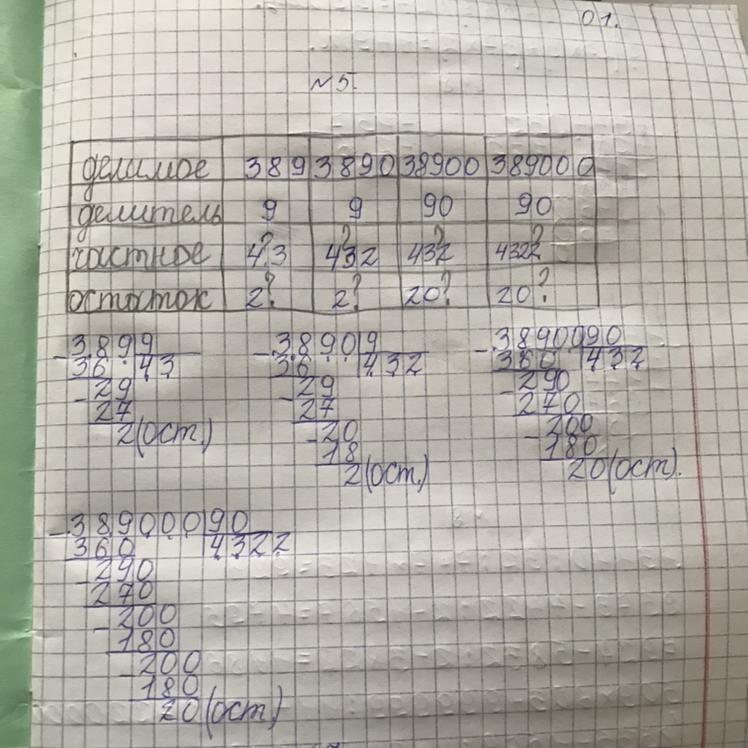 01.
№5.
делимое 389 3890 38900 389000
делитель 9 9 90 90
частное 43? 432? 432? 4322?
остаток 2? 2? 20? 20?
- 389 9
36 43
- 29
27
2(ост.)
- 3890 9
36 432
- 29
27
- 20
18
2(ост.)
- 38900 90
360 432
- 290
270
- 200
180
20(ост).
- 389000 90
360 4322
- 290
270
- 200
180
- 200
180
20(ост)